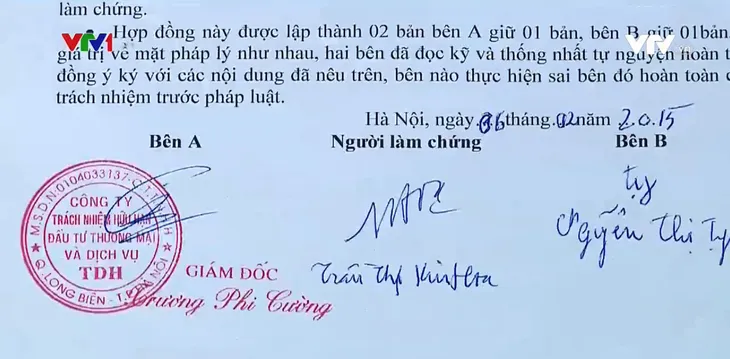 làm chứng.
Hợp đồng này được lập thành 02 bản bên A giữ 01 bản, bên B giữ 01bản,
giá trị về mặt pháp lý như nhau, hai bên đã đọc kỹ và thống nhất tự nguyện hoàn t
đồng ý ký với các nội dung đã nêu trên, bên nào thực hiện sai bên đó hoàn toàn c
trách nhiệm trước pháp luật.
VTV1
VTV
Hà Nội, ngày 06 tháng 02 năm 2015
Bên A
Người làm chứng
Bên B
M.S.D.N:0104033137-C.T.T.N.H.H
CÔNG TY
TRÁCH NHIỆM HỮU HẠN
ĐẦU TƯ THƯƠNG MẠI
VÀ DỊCH VỤ
TDH
Q.LONG BIÊN - T.P HÀ NỘI
GIÁM ĐỐC
Trương Phi Cường
Trần Thị
Tỵ
Nguyễn Thị Tỵ